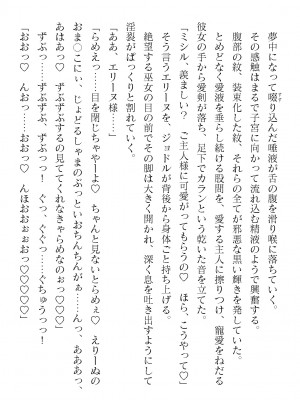 夢中になって啜り込んだ唾液が舌の腹を滑り喉に落ちていく。
その感触はまるで子宮に向かって流れ込む精液のようで興奮する。
腹部の紋、装束化した紋、それらの全てが邪悪な黒い輝きを発していた。
とめどなく愛液を垂らし続ける股間を、愛する主人に擦りつけ、寵愛をねだる
彼女の手から愛剣が落ち、足下でカランという乾いた音を立てた。
「ミシル、羨ましい？　ご主人様に可愛がってもらうの♡　ほら、こうやって♡」
そう言うエリーヌを、ジョドルが背後から身体ごと持ち上げる。
絶望する巫女の目の前でその脚は大きく開かれ、深く息を吐き出すようにして
淫裂がぱっくりと割れていく。
「ああ、エリーヌ様……」
「らめえっ……目を閉じちゃやーよ♡　ちゃんと見ないとらめぇ♡　えりーぬの
おま〇こにぃ、じょどるしゃまのぶっといおちんちんがぁ…んっ、あああっ、
あはあっ♡　ずぶずぶするの見ててくれなきゃらめなのぉっ♡♡」
ずぶっ……ずぶぶっ、ずぶぅっ！　ぐっ、ぐぐっ……ぐちゅうっっ！
「おおっ♡　んおっ……おおっ♡　んほおおぉおおっ♡♡♡♡」